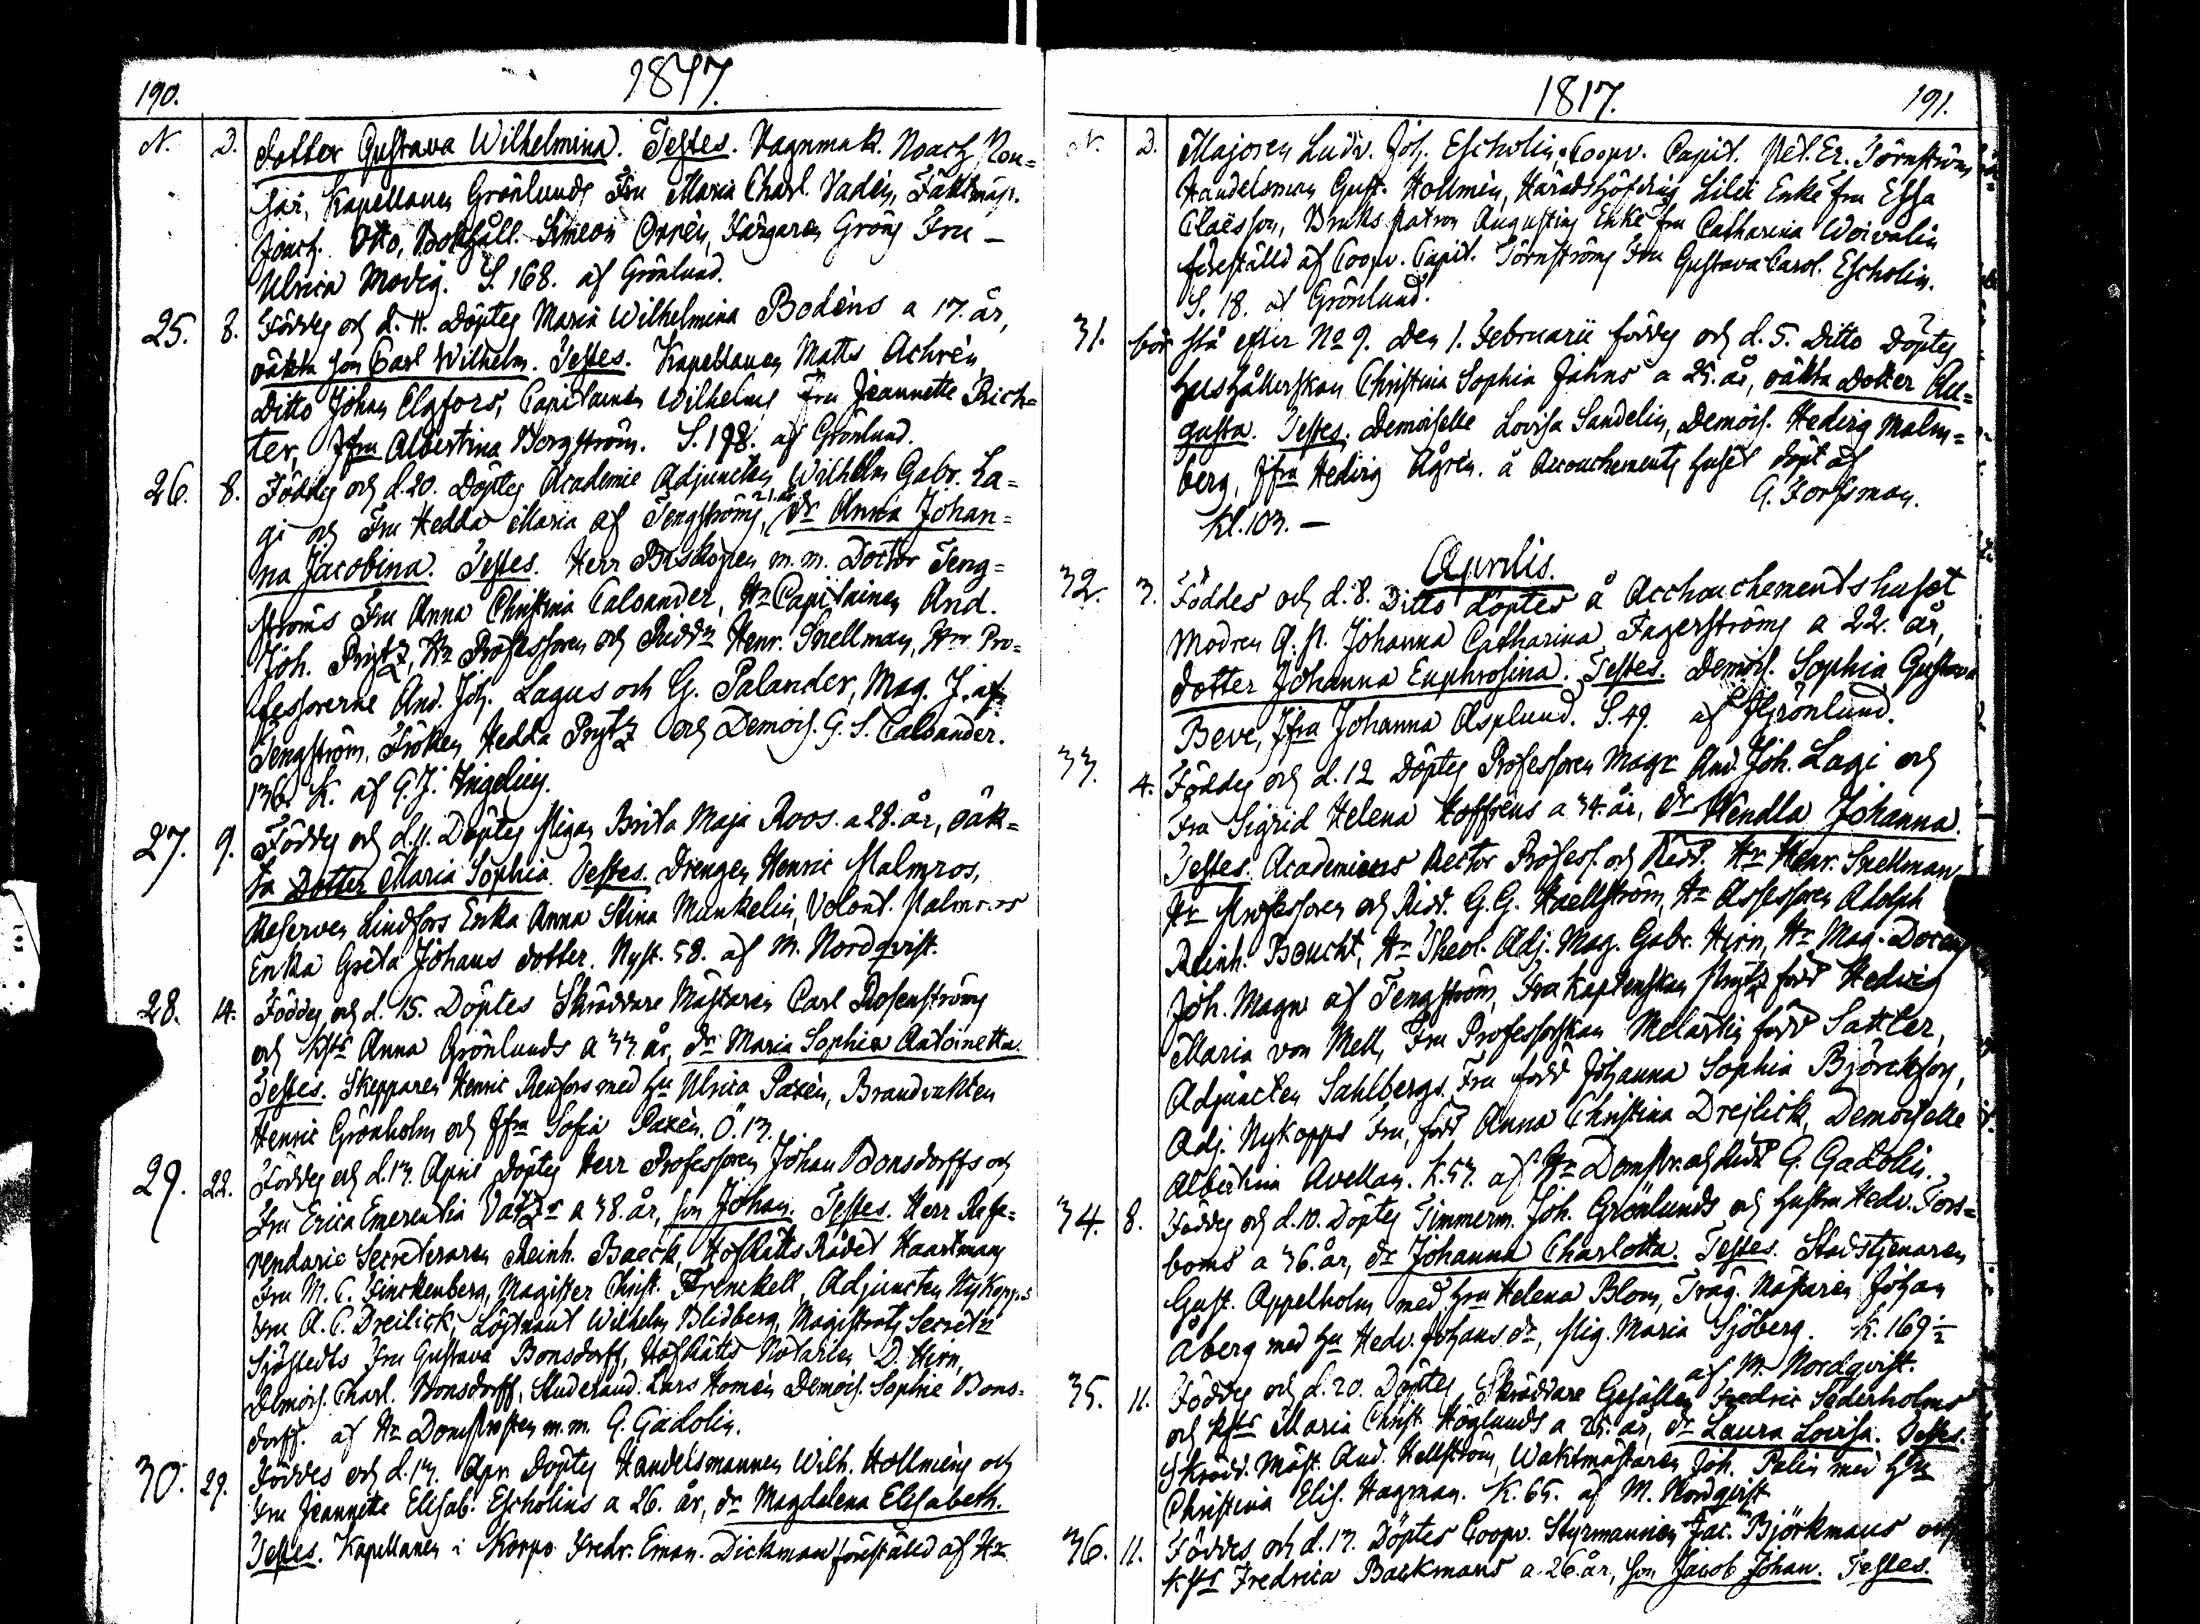 190. 1817.
N. D. dotter Gustava Wilhelmina. Testes. Vagnmak. Noach
Kapellanen Grönlunds Fru Maria Charl. Vadén, Fältmäst.
Joach. Otto, Bokhåll. Simeon Orrén, Färgaren Gröns Fru –
Ulrica Modeg. S. 168. af Grönlund.
25. 8. Föddes och d. 11. Döptes Maria Wilhelmina Bodéns a 17. år,
oäkta son Carl Wilhelm. Testes. Kapellanen Matts Achrén,
Ditto Johan Elgfors, Capitainen Wilhelms Fru Jeannette Rich=
ter, Jfru Albertina Borgström. S. 198. af Grönlund.
26. 8. Föddes och d. 20. Döptes Academie Adjuncten Wilhelm Gabr. La=
gi och Fru Hedda Maria af Tengströms, 21 år, dr Anna Johan=
na Jacobina. Testes. Herr Biskopen m.m. Doctor Teng=
ströms Fru Anna Christina Caloander, Hr Capitainen And.
Joh. Prytz, Hr Professoren och Riddr Henr. Snellman, Hrr Pro=
fessorerne And. Joh. Lagus och G. Palander, Mag. J. af
Tengström, Fröken Hedda Prytz och Demois. G. S. Caloander.
136. K. af G. J. Ingelius.
27. 9. Föddes och d. 11. Döptes Pigan Brita Maja Roos. a 28. år, oäk=
ta Dotter Maria Sophia. Testes. Drengen Henric Malmros,
Reserven Lindfors Enka Anna Stina Munkelin, Volont. Malmros
Enka Greta Johans dotter. Nyst. 58. af M. Nordqvist.
28. 14. Föddes och d. 15. Döptes Skräddare Mästaren Carl Rosenströms
och Hustr Anna Grönlunds a 33 år, dr Maria Sophia Antoinetta.
Testes. Skepparen Henric Renfors med Hu Ulrica Paxén, Brandvakten
Henric Grönholm och Jfru Sofia Paxén. Ö. 13.
29. 22. Föddes och d. 13. April Döptes Herr Professoren Johan Bonsdorffs och
Fru Erica Emerentia a 38. år, son Johan. Testes. Herr Refe=
rendarie Secreteraren Reinh. Baeck, HofRätts Rådet Haartmans
Fru M. C. Finckenberg, Magister Christ. Frenckell, Adjuncten Nykopps
Fru A. C. Dreilick, Löjtnant Wilhelm Blidberg, Magistrats Secretr
Sjöstedts Fru Gustava Bonsdorff, HofRätts Notarien D. Hirn,
Demois. Charl. Bonsdorff, Studerand. Lars Homén Demois. Sophie Bons=
dorff. af Hr Domprosten m.m. G. Gadolin.
30. 29. Föddes och d. 13. Apr. Döptes Handelsmannen Wilh. Hollméns och
Fru Jeannette Elisab. Escholins a 26. år, dr Magdalena Elisabeth.
Testes. Kapellanen i Korpo Fredr. Eman. Dickman föreställd af Hr
1817. 191.
N. D. Majoren Ludv. Joh. Escholin, Coopv. Capit. Pet. Er. Törnström
Handelsman Gust. Hollmén, Häradshöfding Lilii Enke Fru Ebba
Claësson, Bruks patron Augustins Enke Fru Catharina Woivalin
föreställd af Coopv. Capit. Törnströms Fru Gustava Carol. Escholin.
S. 18. af Grönlund.
31. bör stå efter No 9. Den 1. Februarii föddes och d. 5. Ditto Döptes
Hushållerskan Christina Sophia Jahns a 25. år, oäkta Dotter Au=
gusta. Testes. Demoiselle Lovisa Sandelin, Demois. Hedvig Malm=
berg, Jfru Hedvig Ågrén. å Accouchements huset döpt af
Kl. 103. – G. Forssman.
Aprilis.
32. 3. Föddes och d. 8. Ditto döptes å Acchouchementshuset
Modren Q. P. Johanna Catharina Fagerströms a 22. år,
dotter Johanna Euphrosina. Testes. Demois. Sophia Gustava
Beve, Jfru Johanna Asplund. S. 49. af Grönlund.
33. 4. Föddes och d. 12 Döptes Professoren Magr And. Joh. Lagi och
Fru Sigrid Helena Hoffréns a 34. år, dr Wendla Johanna.
Testes. Academiens Rector Profess. och Ridd. Hr Henr. Snellman,
Hr Professoren och Ridd. G. G. Haellström, Hr Assessoren Adolph
Reinh. Boucht, Hr Theol. Adj. Mag. Gabr. Hirn, Hr Mag. Docens
Joh. Magn. af Tengström, Fru Kaptenskan Prytz född Hedvig
Maria von Mell, Fru Professorskan Melartin född Sattler,
Adjuncten Sahlbergs Fru född Johanna Sophia Björckfors,
Adj. Nykopps Fru, född Anna Christina Drejlick, Demoiselle
Albertina Avellan. K. 57. af Hr Domkr. och Ridd. G. Gadolin.
34. 8. Föddes och d. 10. Döptes Timmerm. Joh. Grönlunds och hustru Hedv. Fors=
boms a 36. år, dr Johanna Charlotta. Testes. Stadstjenaren
Gust. Appelholm med hru Helena Blom, Träg. Mästaren Johan
Åberg med Hu Hedv. Johans dr, Pig. Maria Sjöberg. K. 169½
af M. Nordqvist.
35. 11. Föddes och d. 20. Döptes Skräddare Gesällen Fredric Söderholms
och Hstr Maria Christ. Höglunds a 25. år, dr Laura Lovisa. Testes.
Skrädd. Mäst. And. Hellström, Waktmästaren Joh. Palin med Hu
Christina Elis. Hagman. K. 65. af M. Nordqvist
36. 11. Föddes och d. 13. Döptes Coopv. Styrmannen Jac. Björkmans och
Hstr Fredrica Backmans a. 26. år, son Jacob Johan. Testes.